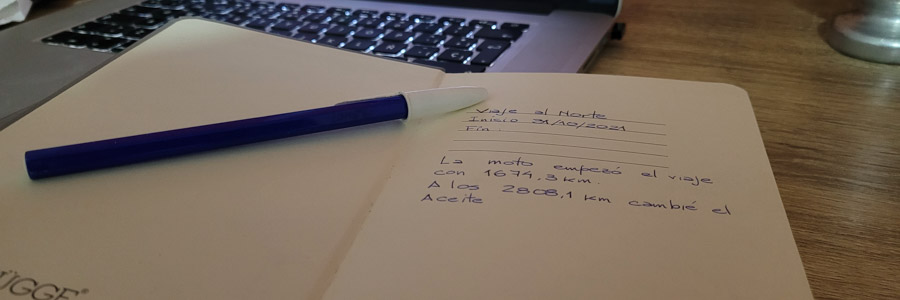 Viaje al Norte
Inicio 31/10/2021
Fin:
La moto empezó el viaje
con 1674,3 km.
A los 2808,1 km cambié el
Aceite
ÜGGE®